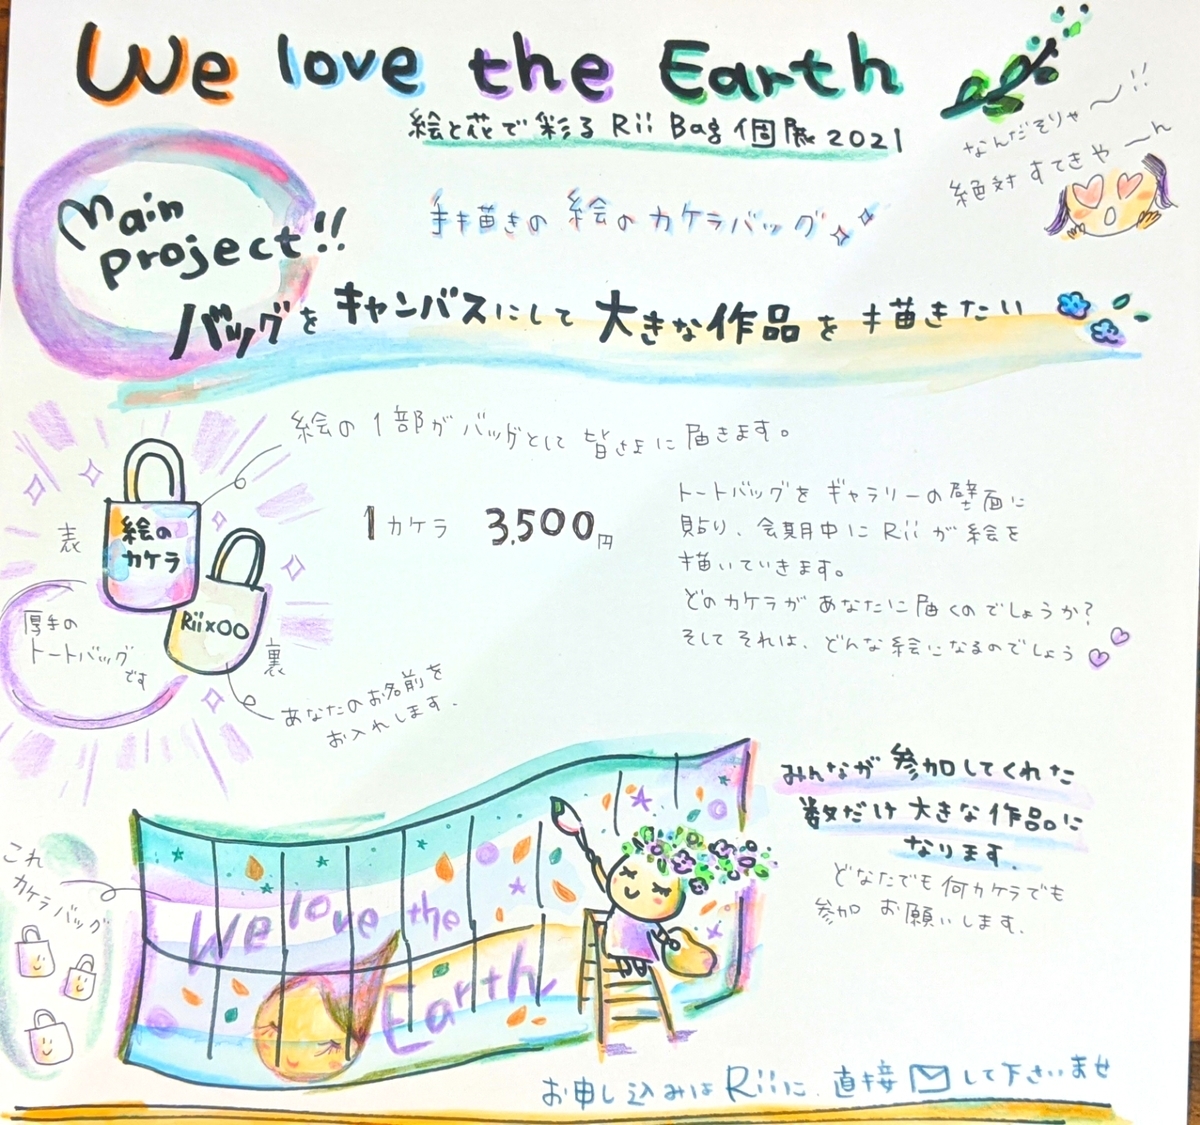 We love the Earth
絵と花で彩る Rii Bag 個展 2021
なんだそりゃ〜!!
絶対すてきや〜ん
Main
project!!
手描きの 絵の カケラバッグ
バッグを キャンバスにして 大きな作品を 描きたい
絵の1部がバッグとして皆さまに届きます。
表
絵の
カケラ
Rii×〇〇
裏
厚手の
トートバッグ
です
あなたのお名前を
お入れします.
1カケラ 3,500円
トートバッグを ギャラリーの壁面に
貼り、会期中に Rii が 絵を
描いていきます。
どのカケラが あなたに届くのでしょうか?
そして それは、どんな絵になるのでしょう
みんなが 参加してくれた
数だけ 大きな作品に
なります.
どなたでも 何カケラでも
参加 お願いします.
これ
カケラバッグ
We love the
Earth
お申し込みは Riiに 直接 して下さいませ